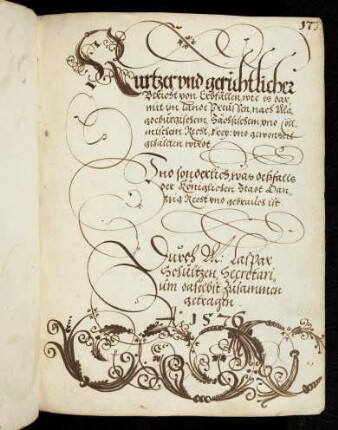 173
Kurtzer vnd gerichtlicher
Bericht von Erbfällen, wie es dar
mit im lande Preussen, nach Ma
gdeburgischem, Sächsischem, vnd
Recht, vnd gewonheit
gehalten wirdt
Vnd sonderlich, was desfalls
der Königlichen Stadt Dan
tzig Recht vnd gebrauch ist
Durch M. Caspar
Schültzen, Secretari
um daselbst zusammen
getragen
A. 1576